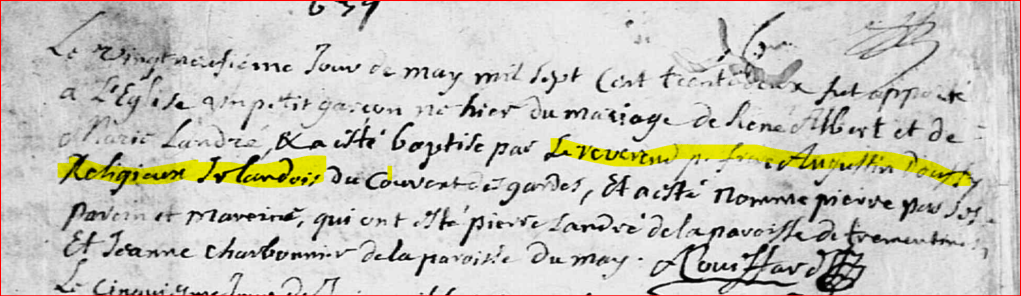 Le vingtneufiéme Jour de may mil sept Cent trentedeux fut apporté
a L'Eglise un petit garçon né hier du mariage de René Albert et de
Marie Landré, & a esté baptisé par Le reverend p. frere Augustin
Religieux Irlandois du Couvent des gardes, Et a esté nommé pierre par ses
parein et mareine, qui ont esté pierre Landré de la paroisse de trementines
Et Jeanne charbonnier de la paroisse du may.
Le Cinquiesme Jour de